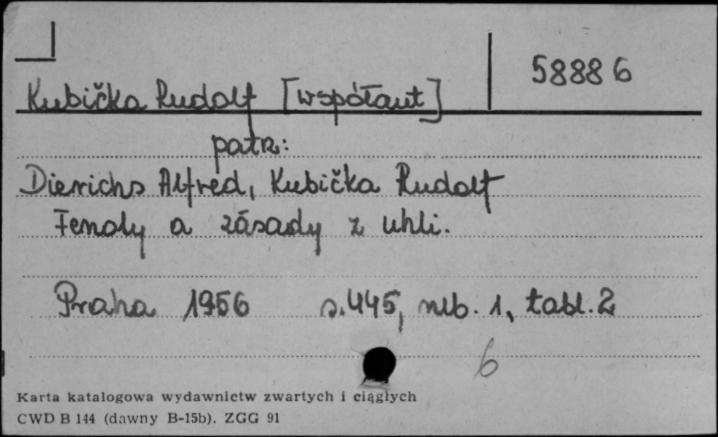 58886
Kubička Rudolf [współaut]
patrz:
Dierichs Alfred, Kubička Rudolf
Fenoly a zásady z uhli.
Praha 1956 s. 445, nlb. 1, tabl. 2
6
Karta katalogowa wydawnictw zwartych i ciągłych
CWD B 144 (dawny B-15b). ZGG 91